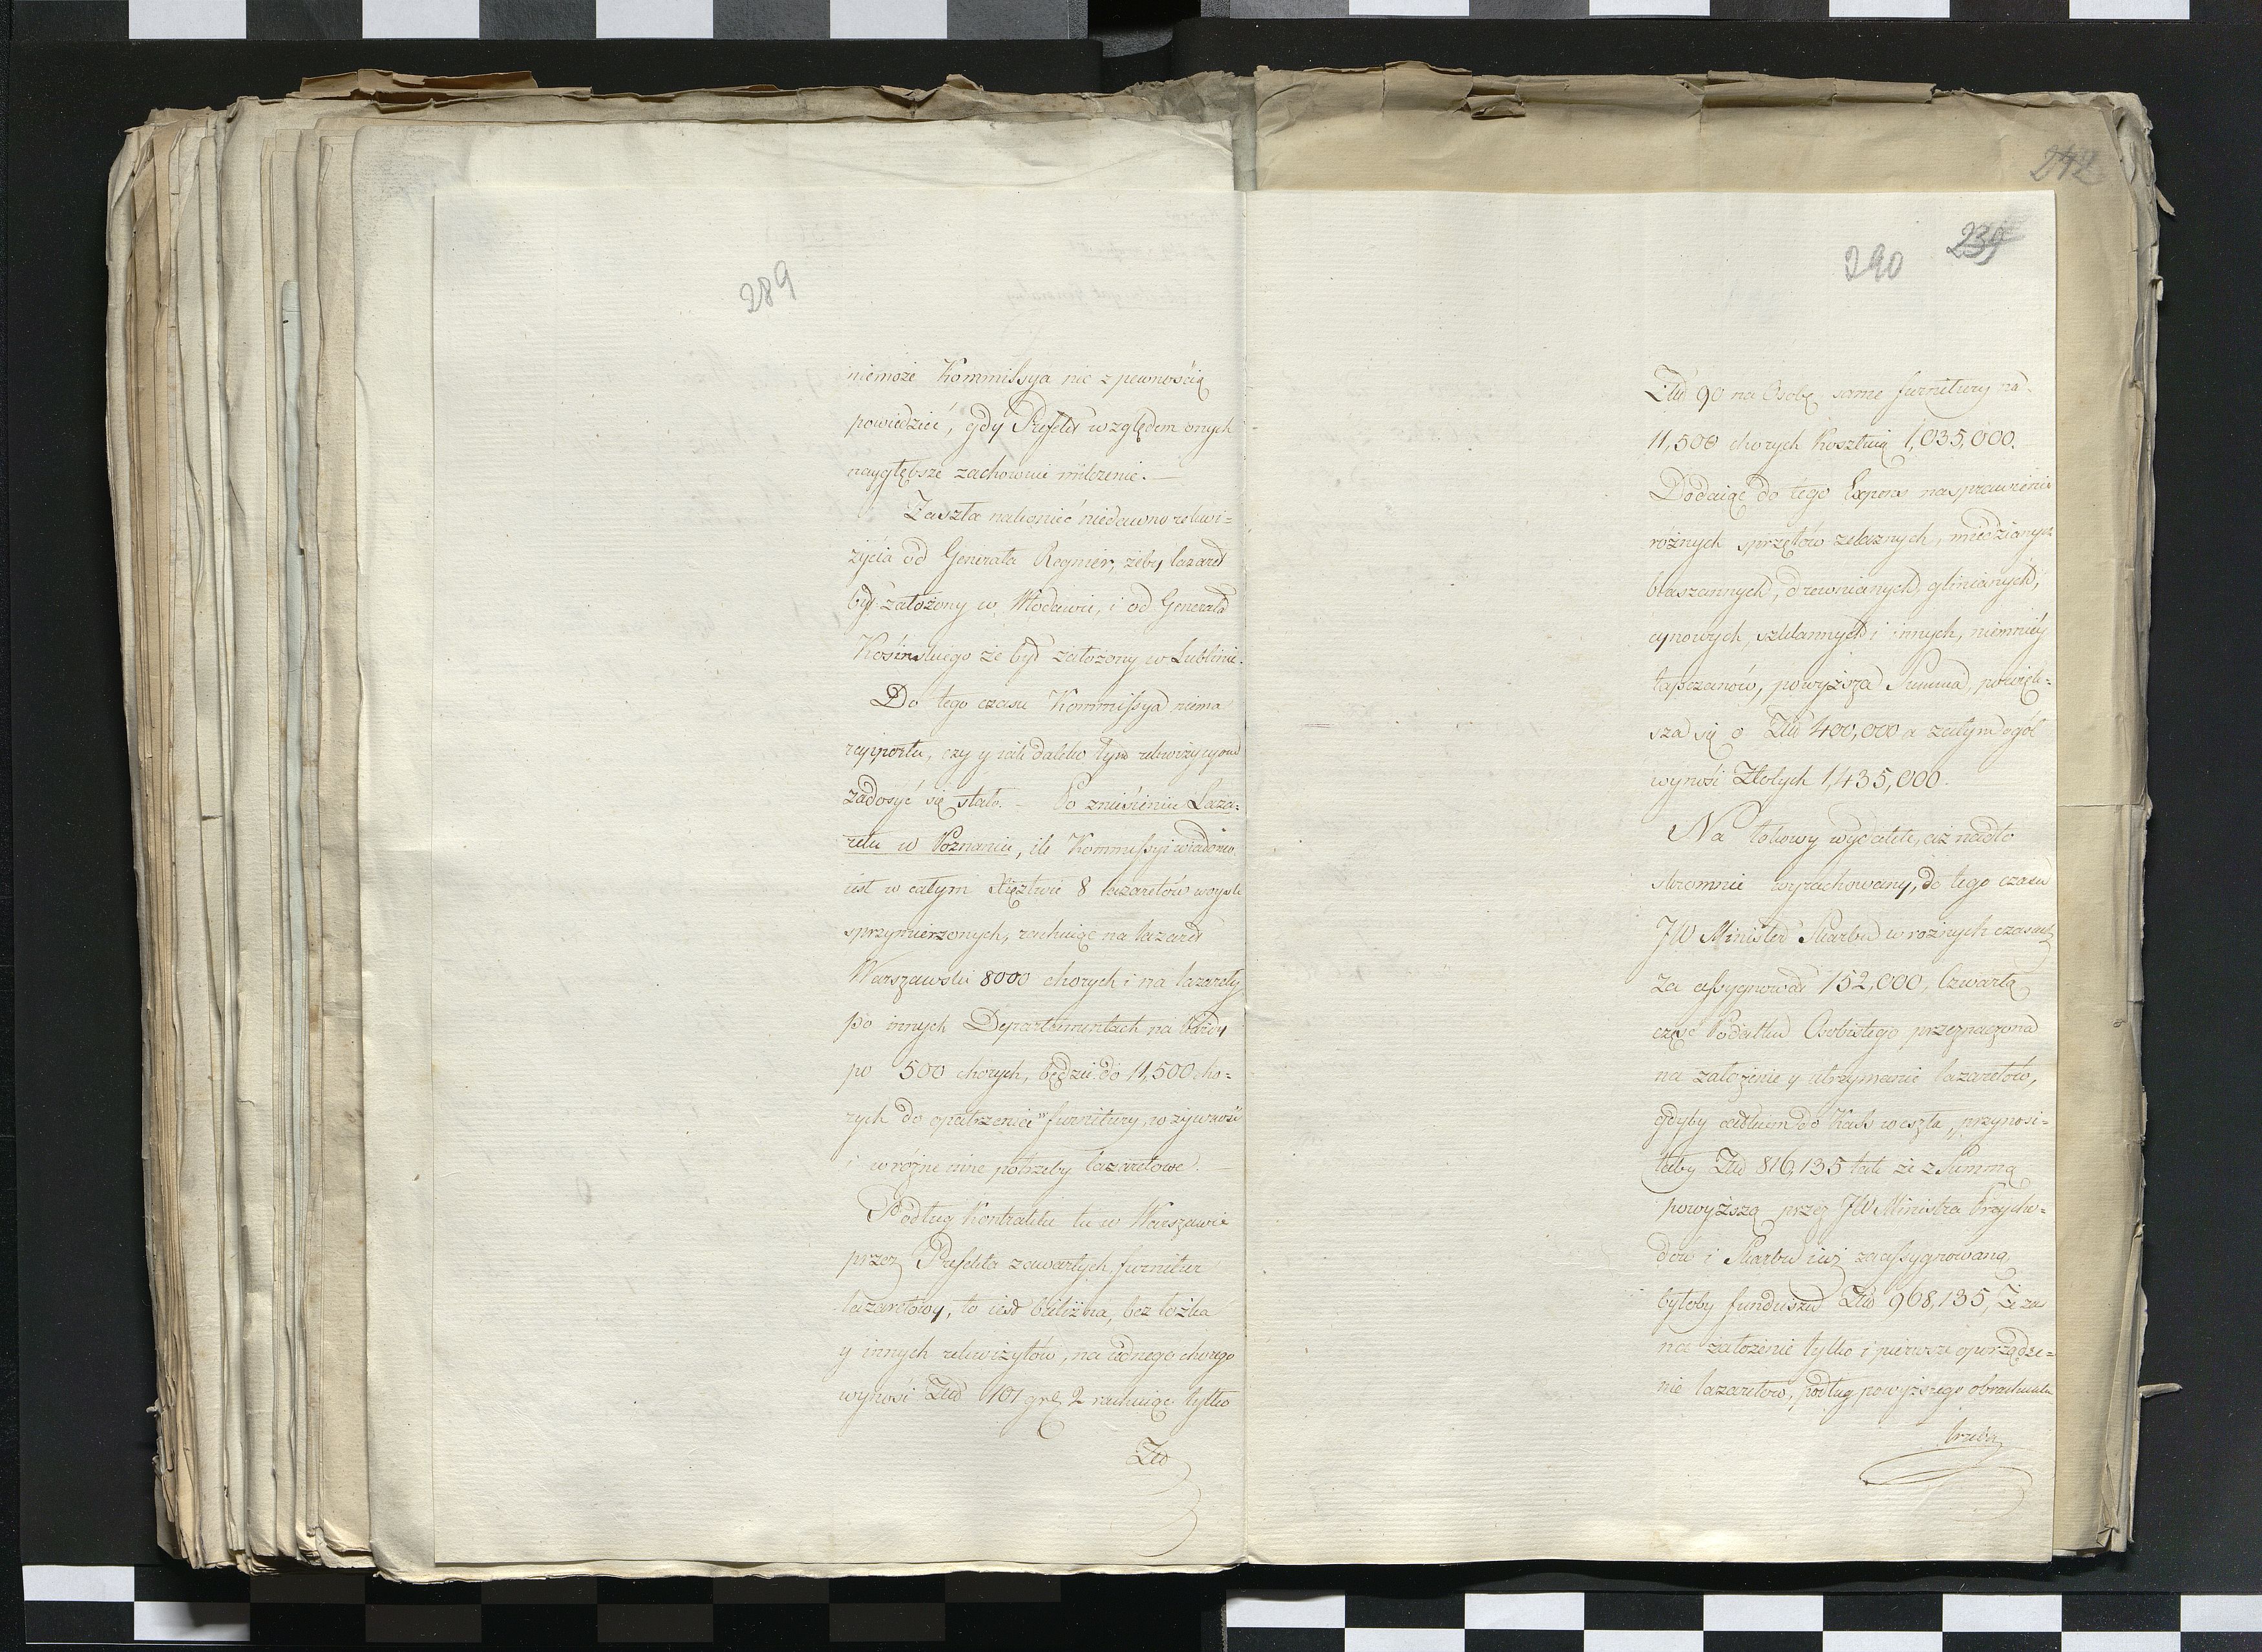 289
niemoże Kommissya nic z pewnością
powiedzieć, gdy Prefekt względem onych
naygłębsze zachowuie milczenie. —
Zaszła nakoniec niedawno rekwi=
zycia od Generała Regnier, żeby lazaret
był założony w Włodawie, i od Generała
Kosinskiego że był założony w Lublinie.
Do tego czasu Kommissya niema
rapportu, czy y iak daleko tym rekwizycyom
zadosyć się stało. — Po zniesieniu Laza=
retu w Poznaniu, ile Kommissyi wiadomo
iest w całym Xięztwie 8 lazaretów woysk
sprzymierzonych, rachuiąc na lazaret
Warszawski 8000 chorych i na lazarety
po innych Departamentach na każdy
po 500 chorych, będzie do 11,500 cho=
rych do opatrzenia w furnitury, w żywność
i w różne inne potrzeby lazaretowe. —
Podług Kontraktu tu w Warszawie
przez Prefekta zawartych, furnitur
lazaretowy, to iest bielizna, bez łóżka
y innych rekwizytów, na iednego chorego
wynosi Złtd 101 gr. 2 rachuiąc tylko
Złtd
242
239
290
Złtd 90 na Osobę same furnitury na
11,500 chorych kosztuią 1,035,000.
Dodaiąc do tego Expens na sprawienie
różnych sprzętów żelaznych, miedzianych
blaszannych, drewnianych, glinianych,
cynowych, szklannych i innych, niemniéy
tapczanów, powyższa Summa, powięk=
sza się o Złtd 400,000 a zatym ogół
wynosi Złotych 1,435,000.
Na takowy wydatek, aż nadto
skromnie wyrachowany, do tego czasu
JW Minister Skarbu w roznych czasach
za assygnował 152,000, Czwarta
część Podatku Osobistego przeznaczona
na założenie y utrzymanie lazaretów,
gdyby całkiem do Kass weszła, przynosi=
łaby Złtd 816,135 tak że z Summą
powyższą przez JW Ministra Przycho=
dów i Skarbu iuż zaassygnowaną
byłoby funduszu Złtd 968,135, Że za
na założenie tylko i pierwsze oporządze=
nie lazaretow, podług powyższego obrachunku
trzeba